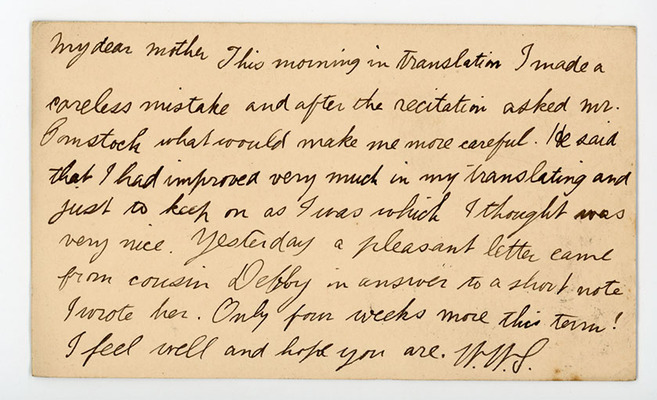 My dear mother This morning in translation I made a
careless mistake and after the recitation asked Mr.
Comstock what would make me more careful. He said
that I had improved very much in my translating and
just to keep on as I was which I thought was
very nice. Yesterday a pleasant letter came
from cousin Debby in answer to a short note
I wrote her. Only four weeks more this term!
I feel well and hope you are. W.W.S.